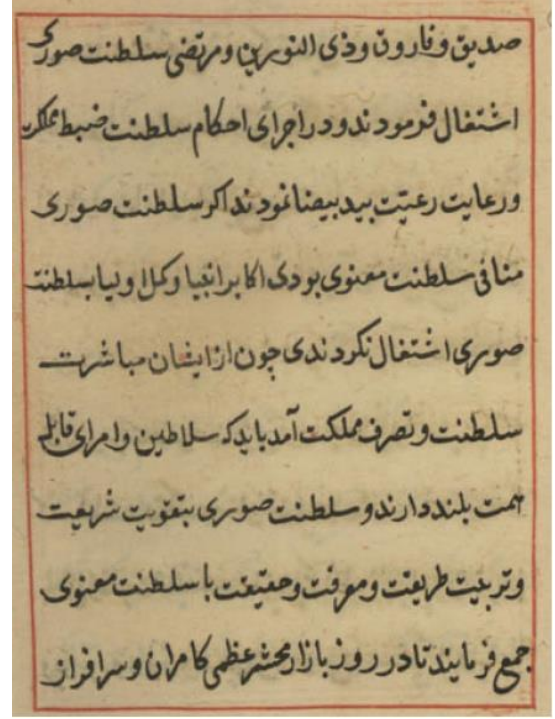 صدیق و فاروق و ذی النورین و مرتضی سلطنت صوری
اشتغال فرمودند و در اجرای احکام سلطنت ضبط مملکت
و رعایت رعیّت بید بیضا نمودند اکر سلطنت صوری
منافی سلطنت معنوی بودی اکابر انبیا و کمل اولیا بسلطنت
صوری اشتغال نکردندی چون از ایشان مباشرت
سلطنت و تصرف مملکت آمد باید که سلاطین و امرای قابل
همت بلند دارند و سلطنت صوری بتقویت شریعت
و تربیت طریقت و معرفت و حقیقت با سلطنت معنوی
جمع فرمایند تا در روز بازار محشر عظمی کامران و سرافراز